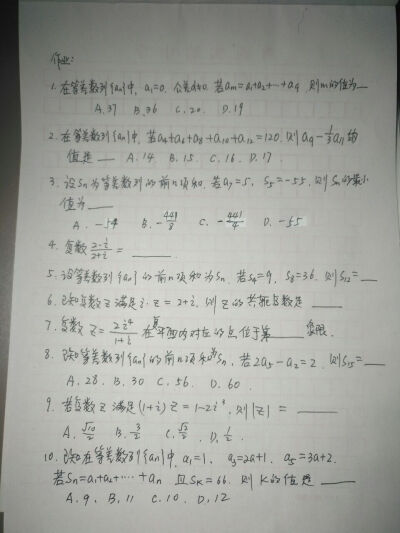 作业:
1. 在等差数列{an}中, a₁=0, 公差d≠0. 若am=a₁+a₂+…+a₉, 则m的值为__
A.37 B.36 C.20. D.19
2. 在等差数列{an}中, 若a₄+a₆+a₈+a₁₀+a₁₂=120, 则a₉-⅓a₁₁的
值是__ A.14. B.15. C.16. D.17.
3. 设Sn为等差数列的前n项和, 若a₇=5, S₅=-55, 则Sn的最小
值为__
A. -54 B. -441/8 C. -441/4 D. -55
4. 复数(2-i)/(2+i)=____.
5. 设等差数列{an}的前n项和为Sn, 若S₄=9, S₈=36, 则S₁₂=__
6. 已知复数z满足i·z=2+i, 则z的共轭复数是____
7. 复数z=2i⁴/(1+i)在复平面内对应的点位于第____象限.
8. 已知等差数列{an}的前n项和为Sn, 若2a₅-a₂=2, 则S₁₅=__
A.28. B.30 C.56. D.60.
9. 若复数z满足(1+i)z=1-2i³, 则|z|=____
A. √10/2 B. 3/2 C. √2/2 D. 1/2.
10. 已知在等差数列{an}中, a₁=1, a₃=2a+1, a₅=3a+2,
若Sn=a₁+a₂+……+an 且Sk=66. 则K的值是____
A.9. B.11 C.10. D.12